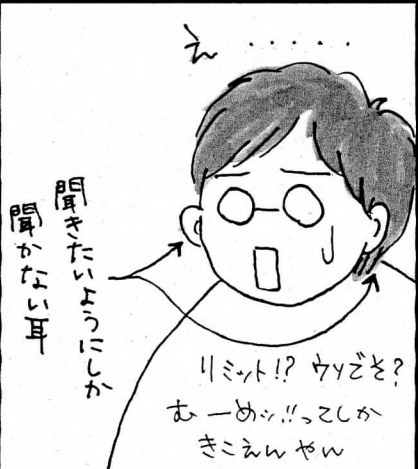 え・・・・・・
聞きたいようにしか
聞かない耳
リミット!? ウソでそ?
むーめッ!!ってしか
きこえんやん